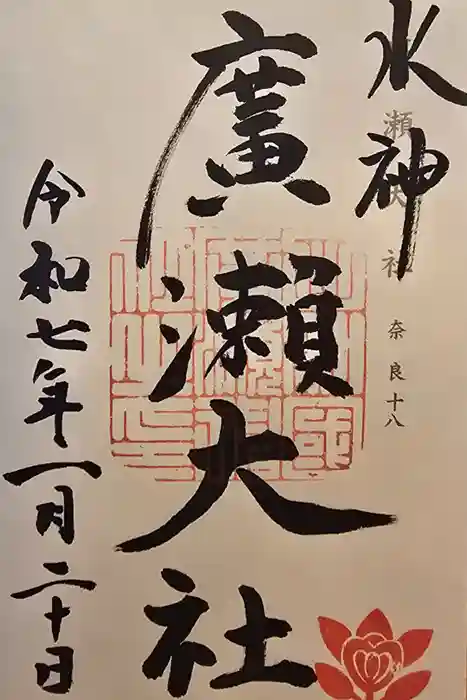 水神
瀬大社 奈良十八
廣瀬大社
令和七年一月二十日